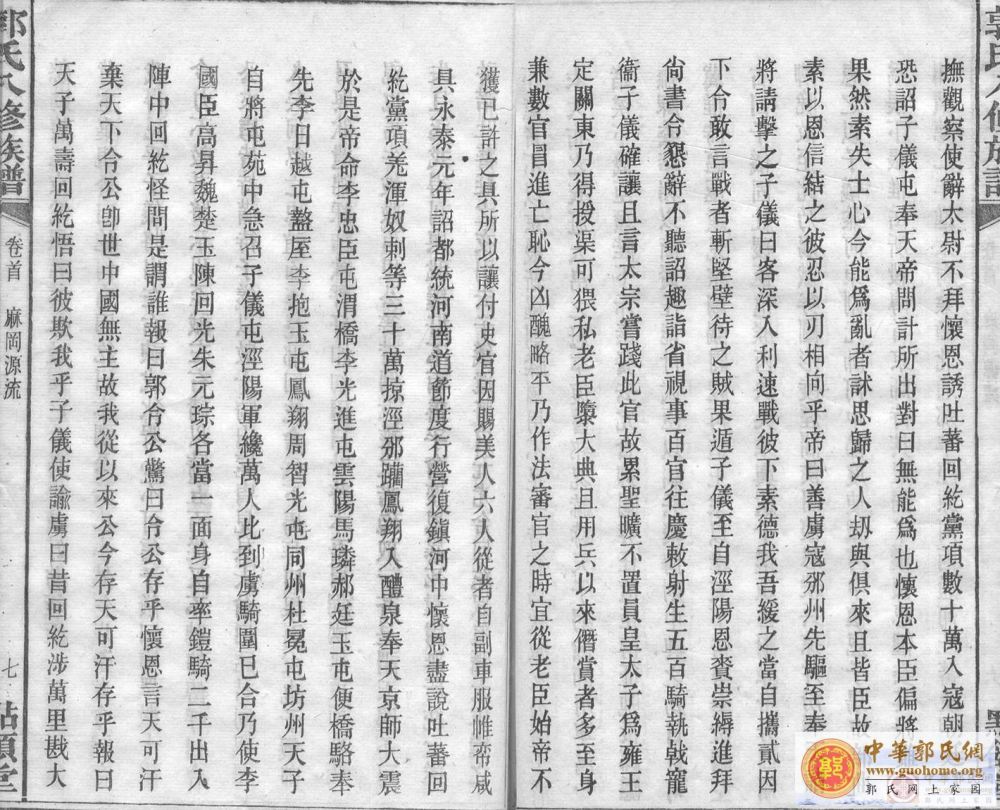 郭氏八修族譜
撫觀察使辭太尉不拜懷恩誘吐蕃回紇黨項數十萬入寇朝
恐詔子儀屯奉天帝問計所出對曰無能為也懷恩本臣偏將
果然素失士心今能為亂者訹思歸之人刼與俱來且皆臣故
素以恩信結之彼忍以刃相向乎帝曰善虜寇邠州先驅至奉
將請擊之子儀曰客深入利速戰彼下素德我吾緩之當自攜貳因
下令敢言戰者斬堅壁待之賊果遁子儀至自涇陽恩賚崇縟進拜
尙書令懇辭不聽詔趣詣省視事百官往慶敕射生五百騎執戟寵
衞子儀確讓且言太宗嘗踐此官故累聖曠不置員皇太子為雍王
定關東乃得授渠可猥私老臣隳大典且用兵以來僭賞者多至身
兼數官冒進亡恥今凶醜略平乃作法審官之時宜從老臣始帝不
獲已許之具所以讓付史官因賜美人六人從者自副車服帷帟咸
具永泰元年詔都統河南道節度行營復鎭河中懷恩盡說吐蕃回
紇黨項羌渾奴刺等三十萬掠涇邠躪鳳翔入醴泉奉天京師大震
於是帝命李忠臣屯渭橋李光進屯雲陽馬璘郝廷玉屯便橋駱奉
先李日越屯盩厔李抱玉屯鳳翔周智光屯同州杜冕屯坊州天子
自將屯苑中急召子儀屯涇陽軍纔萬人比到虜騎圍已合乃使李
國臣高昇魏楚玉陳回光朱元琮各當一面身自率鎧騎二千出入
陣中回紇怪問是謂誰報曰郭令公驚曰令公存乎懷恩言天可汗
棄天下令公卽世中國無主故我從以來公今存天可汗存乎報曰
天子萬壽回紇悟曰彼欺我乎子儀使諭虜曰昔回紇涉萬里戡大
郭氏八修族譜
卷首 麻岡源流
七
中華郭氏網
www.guohome.org
郭氏网上家园